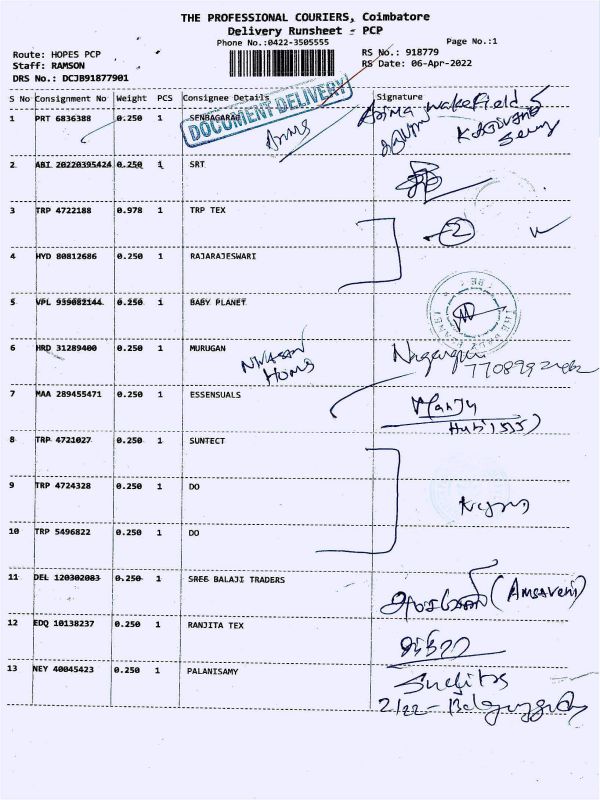 THE PROFESSIONAL COURIERS, Coimbatore
Delivery Runsheet - PCP
Phone No.:0422-3505555
Page No.:1
Route: HOPES PCP
RS No.: 918779
Staff: RAMSON
RS Date: 06-Apr-2022
DRS No.: DCJB91877901
S No Consignment No Weight PCS Consignee Details Signature
DOCUMENT DELIVERY
1 PRT 6836388 0.250 1 SENBAGARAJ
Wakefield
2 ABI 20220395424 0.250 1 SRT
3 TRP 4722188 0.978 1 TRP TEX
2
4 HYD 80812686 0.250 1 RAJARAJESWARI
5 VPL 939082144 0.250 1 BABY PLANET
6 HRD 31289400 0.250 1 MURUGAN
Homs
7 MAA 289455471 0.250 1 ESSENSUALS
Manju
8 TRP 4721027 0.250 1 SUNTECT
9 TRP 4724328 0.250 1 DO
10 TRP 5496822 0.250 1 DO
11 DEL 120302083 0.250 1 SREE BALAJI TRADERS
(Amsaveni)
12 EDQ 10138237 0.250 1 RANJITA TEX
13 NEY 40045423 0.250 1 PALANISAMY
2/22 -